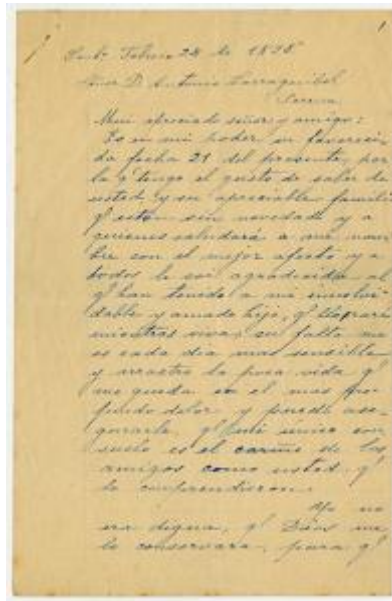 Febrero 28 de 1898
Señor D. Antonio Larraguibel
Serena
Mui apreciado señor y amigo:
Es en mi poder su favoreci-
da fecha 21 del presente, por
la q' tengo el gusto de saber de
usted y su apreciable familia
q' están sin novedad y a
quienes saludará a mi nom-
bre con el mejor afecto y a
todos le soi agradecida al
q' han tenido a mi inolvi-
dable y amado hijo, q' lloraré
mientras viva; su falta me
es cada dia mas sensible
y arrastro la poca vida q'
me queda en el mas pro-
fundo dolor y puedo ase-
gurarle q' mi único con-
suelo es el cariño de los
amigos como usted q'
lo comprendieron.
Yo no
era digna, q' Dios me
lo conservara, para q'